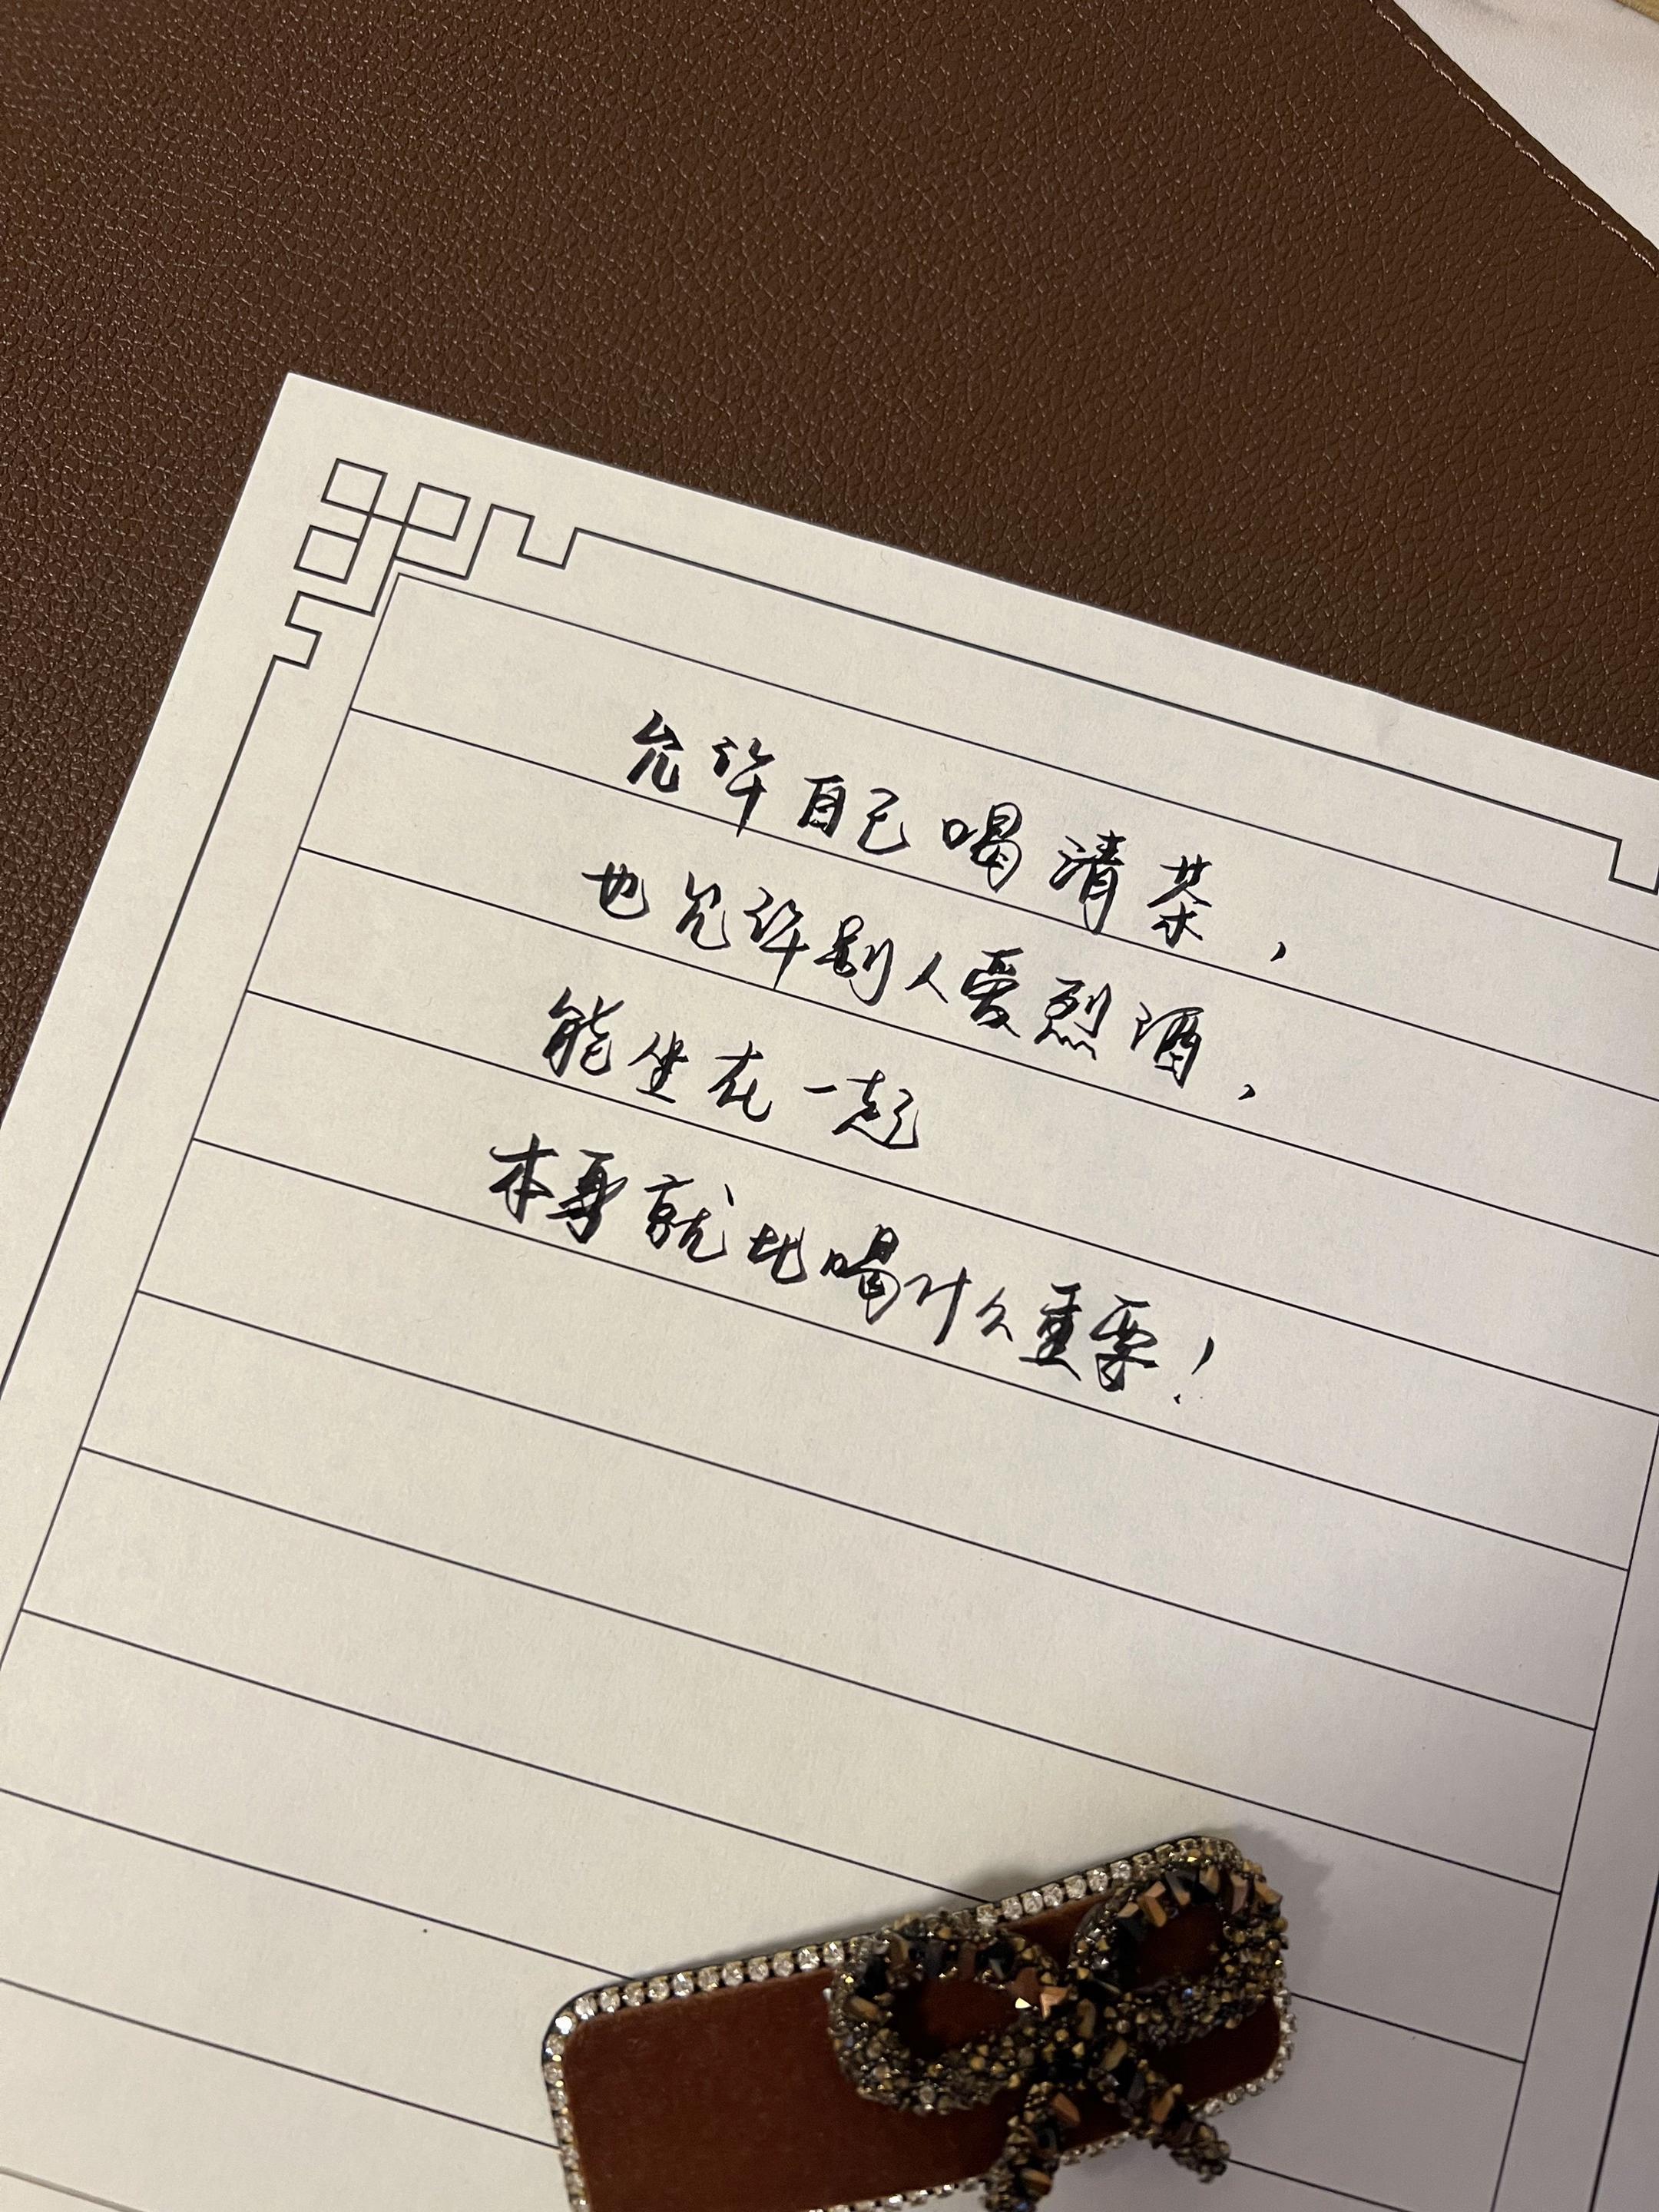 允许自己喝清茶，
也允许别人爱烈酒，
能坐在一起
本身就比喝什么重要！